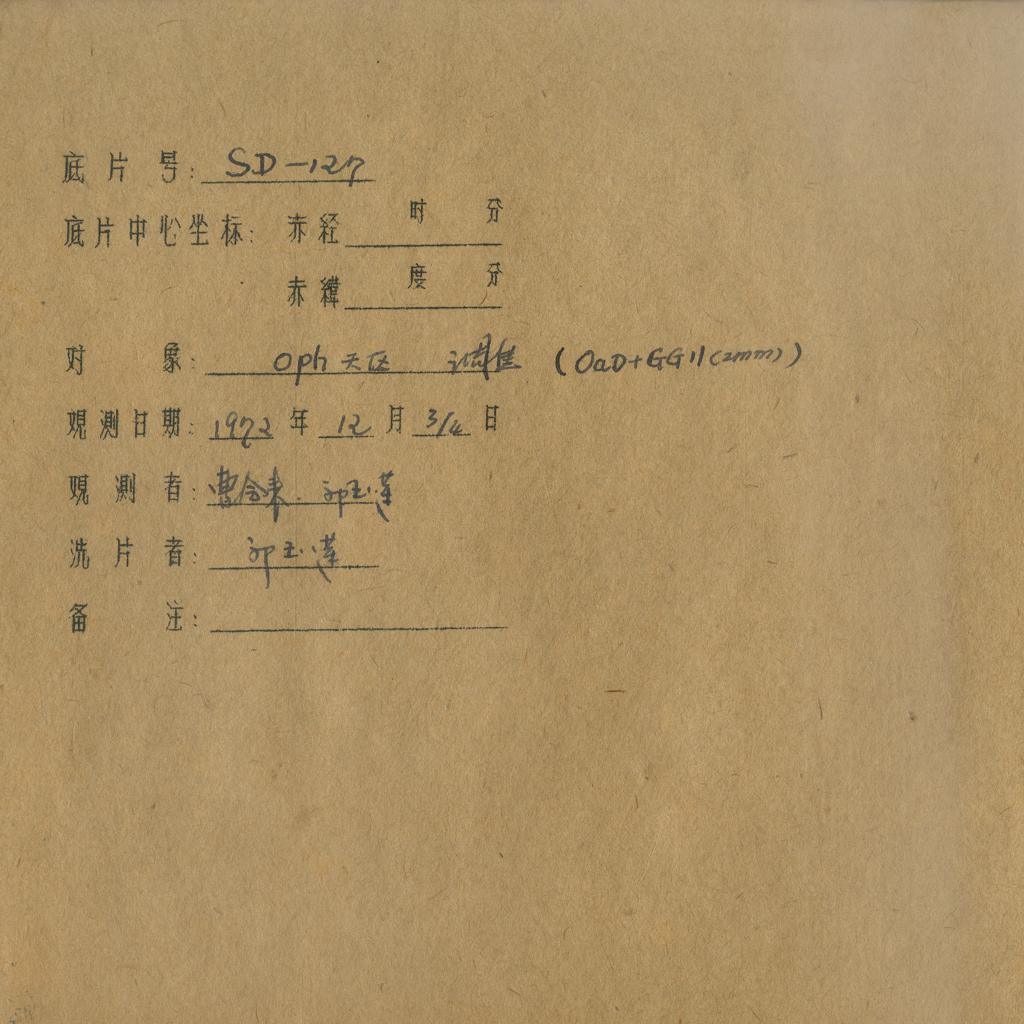 底片号: SD-127
底片中心坐标: 赤经 时 分
赤纬 度 分
对象: Oph 天区 调焦 (OaD+GG11(2mm))
观测日期: 1972 年 12 月 3/4 日
观测者: 曹 玉莲
洗片者: 玉莲
备注: